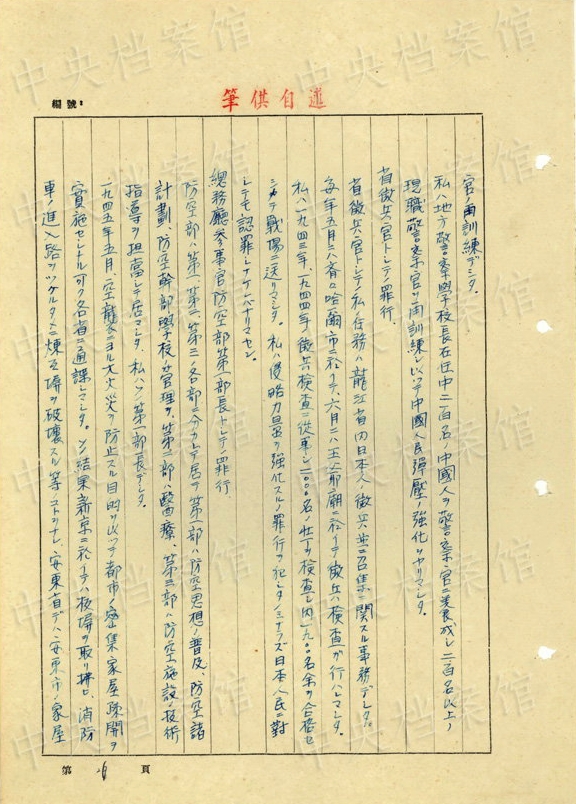 編號:
筆供自述
官ノ再訓練デシタ。
私ハ地方警察學校長在任中二百名ノ中國人ヲ警察官ニ養成シ二百名以上ノ
現職警察官ヲ再訓練シ以ッテ中國人民彈壓ノ強化ヲヤリマシタ。
省徴兵官トシテノ罪行.
省徴兵官トシテノ私ノ任務ハ龍江省内日本人ノ徴兵並ニ召集ニ関スル事務デシタ。
毎年五月ニハ斉々哈爾市ニ於イテ、六月ニハ王爺廟ニ於イテ徴兵検査ガ行ハレマシタ。
私ハ一九四三年、一九四四年徴兵検査ニ從事シ二〇〇〇名ノ壮丁ヲ検査シ内九〇〇名余ヲ合格セ
シメテ戰場ニ送リマシタ。私ハ侵略力量ヲ強化スルノ罪行ヲ犯シタノミナラズ日本人民ニ對
シテモ認罪シナケレバナリマセン。
總務廳参事官防空部第一部長トシテノ罪行
防空部ハ第一、第二、第三ノ各部ニ分カレテ居リ第一部ハ防空思想ノ普及、防空諸
計劃、防空幹部學校ノ管理ヲ、第二部ハ醫療、第三部ハ防空施設ノ技術
指導ヲ担當シテ居マシタ 私ハソノ第一部長デシタ。
一九四五年五月、空襲ニヨル大火災ヲ防止スル目的ヲ以ッテ都市ノ密集家屋疎開ヲ
實施セシムル可ク各省ニ通諜シマシタ。ソノ結果新京ニ於イテハ板塀ヲ取リ拂ヒ、消防
車ノ進入路ヲツケルタメニ煉瓦塀ヲ破壊スル等ノコトヲナシ、安東省デハ安東市ノ家屋
第 頁
中央档案馆